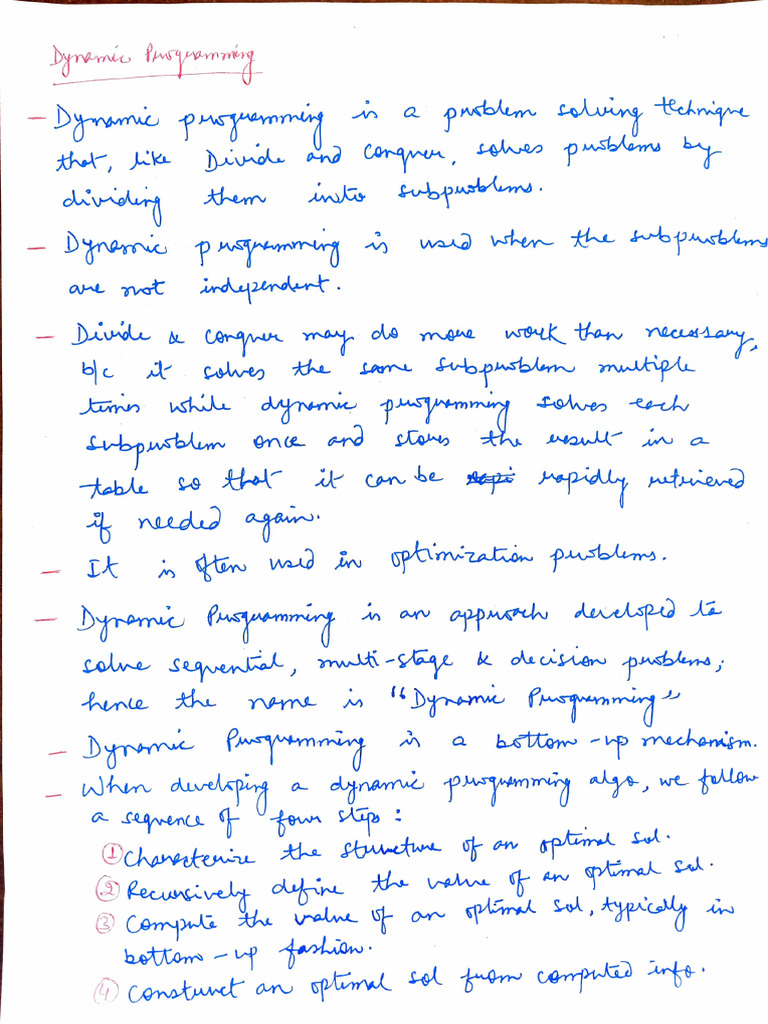 Dynamic Programming
— Dynamic programming is a problem solving technique
that, like Divide and conquer, solves problems by
dividing them into subproblems.
— Dynamic programming is used when the subproblems
are not independent.
— Divide & conquer may do more work than necessary,
b/c it solves the same subproblem multiple
times while dynamic programming solves each
subproblem once and stores the result in a
table so that it can be rapidly retrieved
if needed again.
— It is often used in optimization problems.
— Dynamic Programming is an approach developed to
solve sequential, multi-stage & decision problems;
hence the name is "Dynamic Programming"
— Dynamic Programming is a bottom-up mechanism.
— When developing a dynamic programming algo, we follow
a sequence of four steps:
① Characterize the structure of an optimal sol.
② Recursively define the value of an optimal sol.
③ Compute the value of an optimal sol, typically in
bottom-up fashion.
④ Construct an optimal sol from computed info.